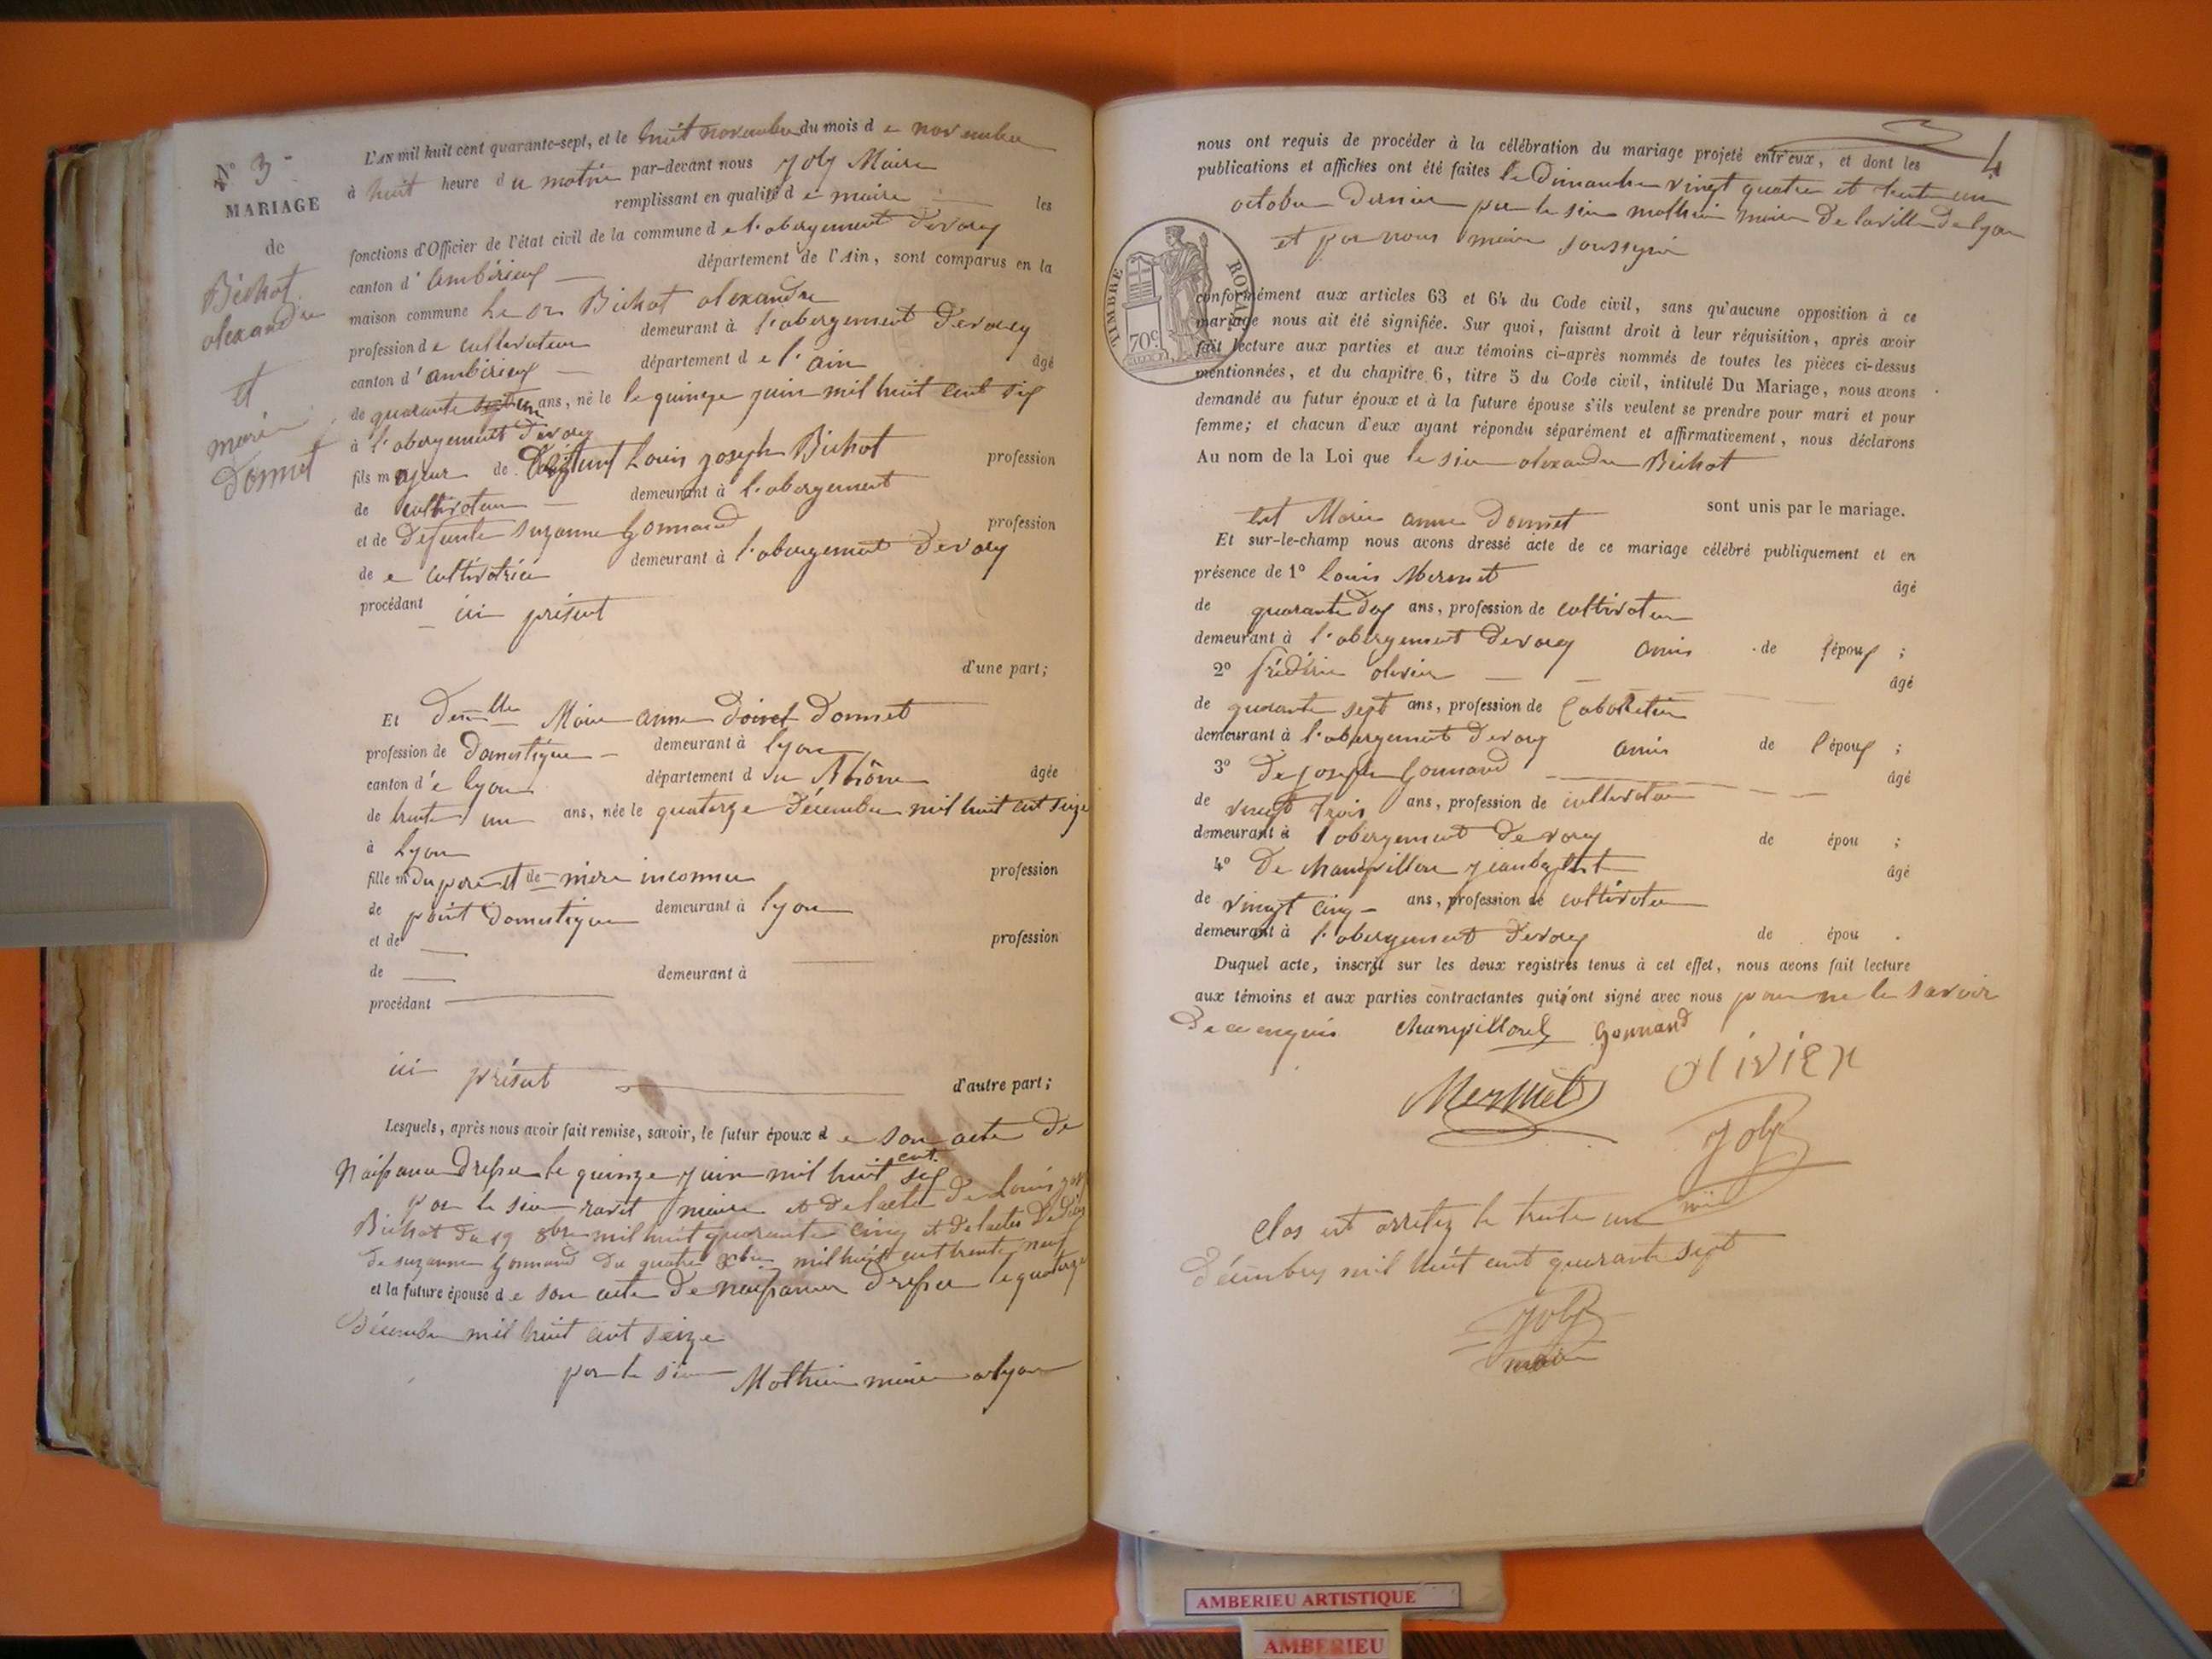 N° 3
MARIAGE
de
Bichot
alexandre
et
marie
Donnet
L'AN mil huit cent quarante-sept, et le huit novembre du mois de novembre
à huit heure du matin par-devant nous Joly Maire
remplissant en qualité de maire les
fonctions d'Officier de l'état civil de la commune de l'abergement Devarey
canton d'ambérieux département de l'Ain, sont comparus en la
maison commune Bichot alexandre
profession de cultivateur demeurant à l'abergement Devarey
canton d'ambérieux département de l'ain âgé
de quarante un ans, né le le quinze juin mil huit cent six
à l'abergement Devarey
fils majeur de Défunt Louis joseph Bichot profession
de cultivateur demeurant à l'abergement
et de Defunte suzanne Gonnand profession
de cultivatrice demeurant à l'abergement Devarey
procédant ici présent
d'une part;
Et Demlle Marie anne Donnet
profession de Domestique demeurant à lyon
canton de lyon département du Rhône âgée
de trente un ans, née le quatorze Décembre mil huit cent seize
à Lyon
fille m du pere et de mère inconnu profession
de Domestique demeurant à lyon
et de profession
de demeurant à
procédant
ici présent d'autre part;
Lesquels, après nous avoir fait remise, savoir, le futur époux de son acte de
Naissance Dressee le quinze juin mil huit cent six
par le sieur maire et de lacte de Louis
Bichot du 19 8bre mil huit quarante cinq et de lactes
de suzanne Gonnand du quatre mil huit cent trente neuf
et la future épouse de son acte de naissance dressee le quatorze
Décembre mil huit cent seize
par le sieur Mathieu maire a lyon
4
nous ont requis de procéder à la célébration du mariage projeté entr'eux, et dont les
publications et affiches ont été faites le Dimanche vingt quatre et trente un
octobre Dernier par le sieur mathieu maire De la ville De lyon
et par nous maire soussigné
TIMBRE ROYAL
70c
conformément aux articles 63 et 64 du Code civil, sans qu'aucune opposition à ce
mariage nous ait été signifiée. Sur quoi, faisant droit à leur réquisition, après avoir
fait lecture aux parties et aux témoins ci-après nommés de toutes les pièces ci-dessus
mentionnées, et du chapitre 6, titre 5 du Code civil, intitulé Du Mariage, nous avons
demandé au futur époux et à la future épouse s'ils veulent se prendre pour mari et pour
femme; et chacun d'eux ayant répondu séparément et affirmativement, nous déclarons
Au nom de la Loi que le sieur alexandre Bichot
et Marie anne Donnet sont unis par le mariage.
Et sur-le-champ nous avons dressé acte de ce mariage célébré publiquement et en
présence de 1° Louis Mermet âgé
de quarante ans, profession de cultivateur
demeurant à l'abergement Devarey amis de l'époux ;
2° frédéric olivier âgé
de quarante sept ans, profession de
demeurant à l'abergement Devarey amis de l'époux ;
3° De joseph Gonnand âgé
de vingt trois ans, profession de cultivateur
demeurant à l'abergement De varey de épou ;
4° De champillon jean âgé
de vingt cinq ans, profession de cultivateur
demeurant à l'abergement Devarey de épou .
Duquel acte, inscrit sur les deux registres tenus à cet effet, nous avons fait lecture
aux témoins et aux parties contractantes qui ont signé avec nous pour ne le savoir
De ce enquis Gonnand
olivier
Mermet
Joly
Clos est arretez le trente un
décembre mil huit cent quarante sept
Joly
maire
AMBERIEU ARTISTIQUE
AMBERIEU